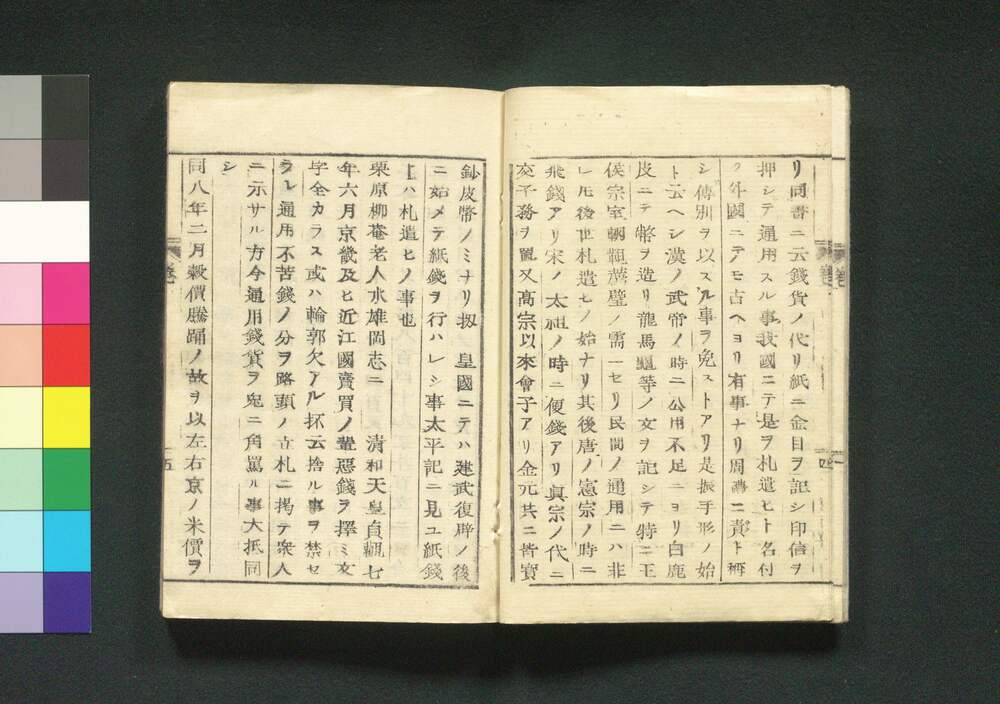 リ同書ニ云錢貨ノ代リ紙ニ金目ヲ記シ印信ヲ
押シテ通用スル事我國ニテ是ヲ札遣ヒト名付
ク外國ニテモ古ヘヨリ有事ナリ周禮ニ責ト稱
シ傅別ヲ以スル事ヲ免ストアリ是振手形ノ始
ト云ヘシ漢ノ武帝ノ時ニ公用不足ニヨリ白鹿
皮ニテ幣ヲ造リ龍馬龜等ノ文ヲ記シテ特ニ王
侯宗室朝覲薦璧ノ需一セリ民間ノ通用ニハ非
レ𪜈後世札遣ヒノ始ナリ其後唐ノ憲宗ノ時ニ
飛錢アリ宋ノ太祖ノ時ニ便錢アリ眞宗ノ代ニ
交子務ヲ置又髙宗以來會子アリ金元共ニ皆寳
鈔皮幣ノミナリ扨 皇國ニテハ建武復辟ノ後
ニ始メテ紙錢ヲ行ハレシ事太平記ニ見ユ紙錢
トハ札遣ヒノ事也
栗原柳菴老人水雄岡志ニ 清和天皇貞觀七
年六月京畿及ヒ近江國賣買ノ輩惡錢ヲ擇ミ文
字全カラス或ハ輪郭欠アル抔云捨ル事ヲ禁セ
ラレ通用不苦錢ノ分ヲ路頭ノ立札ニ掲テ衆人
ニ示サル方今通用錢貨ヲ兎ニ角罵ル事大抵同
シ
同八年二月穀價騰踊ノ故ヲ以左右京ノ米價ヲ
卷
四
五